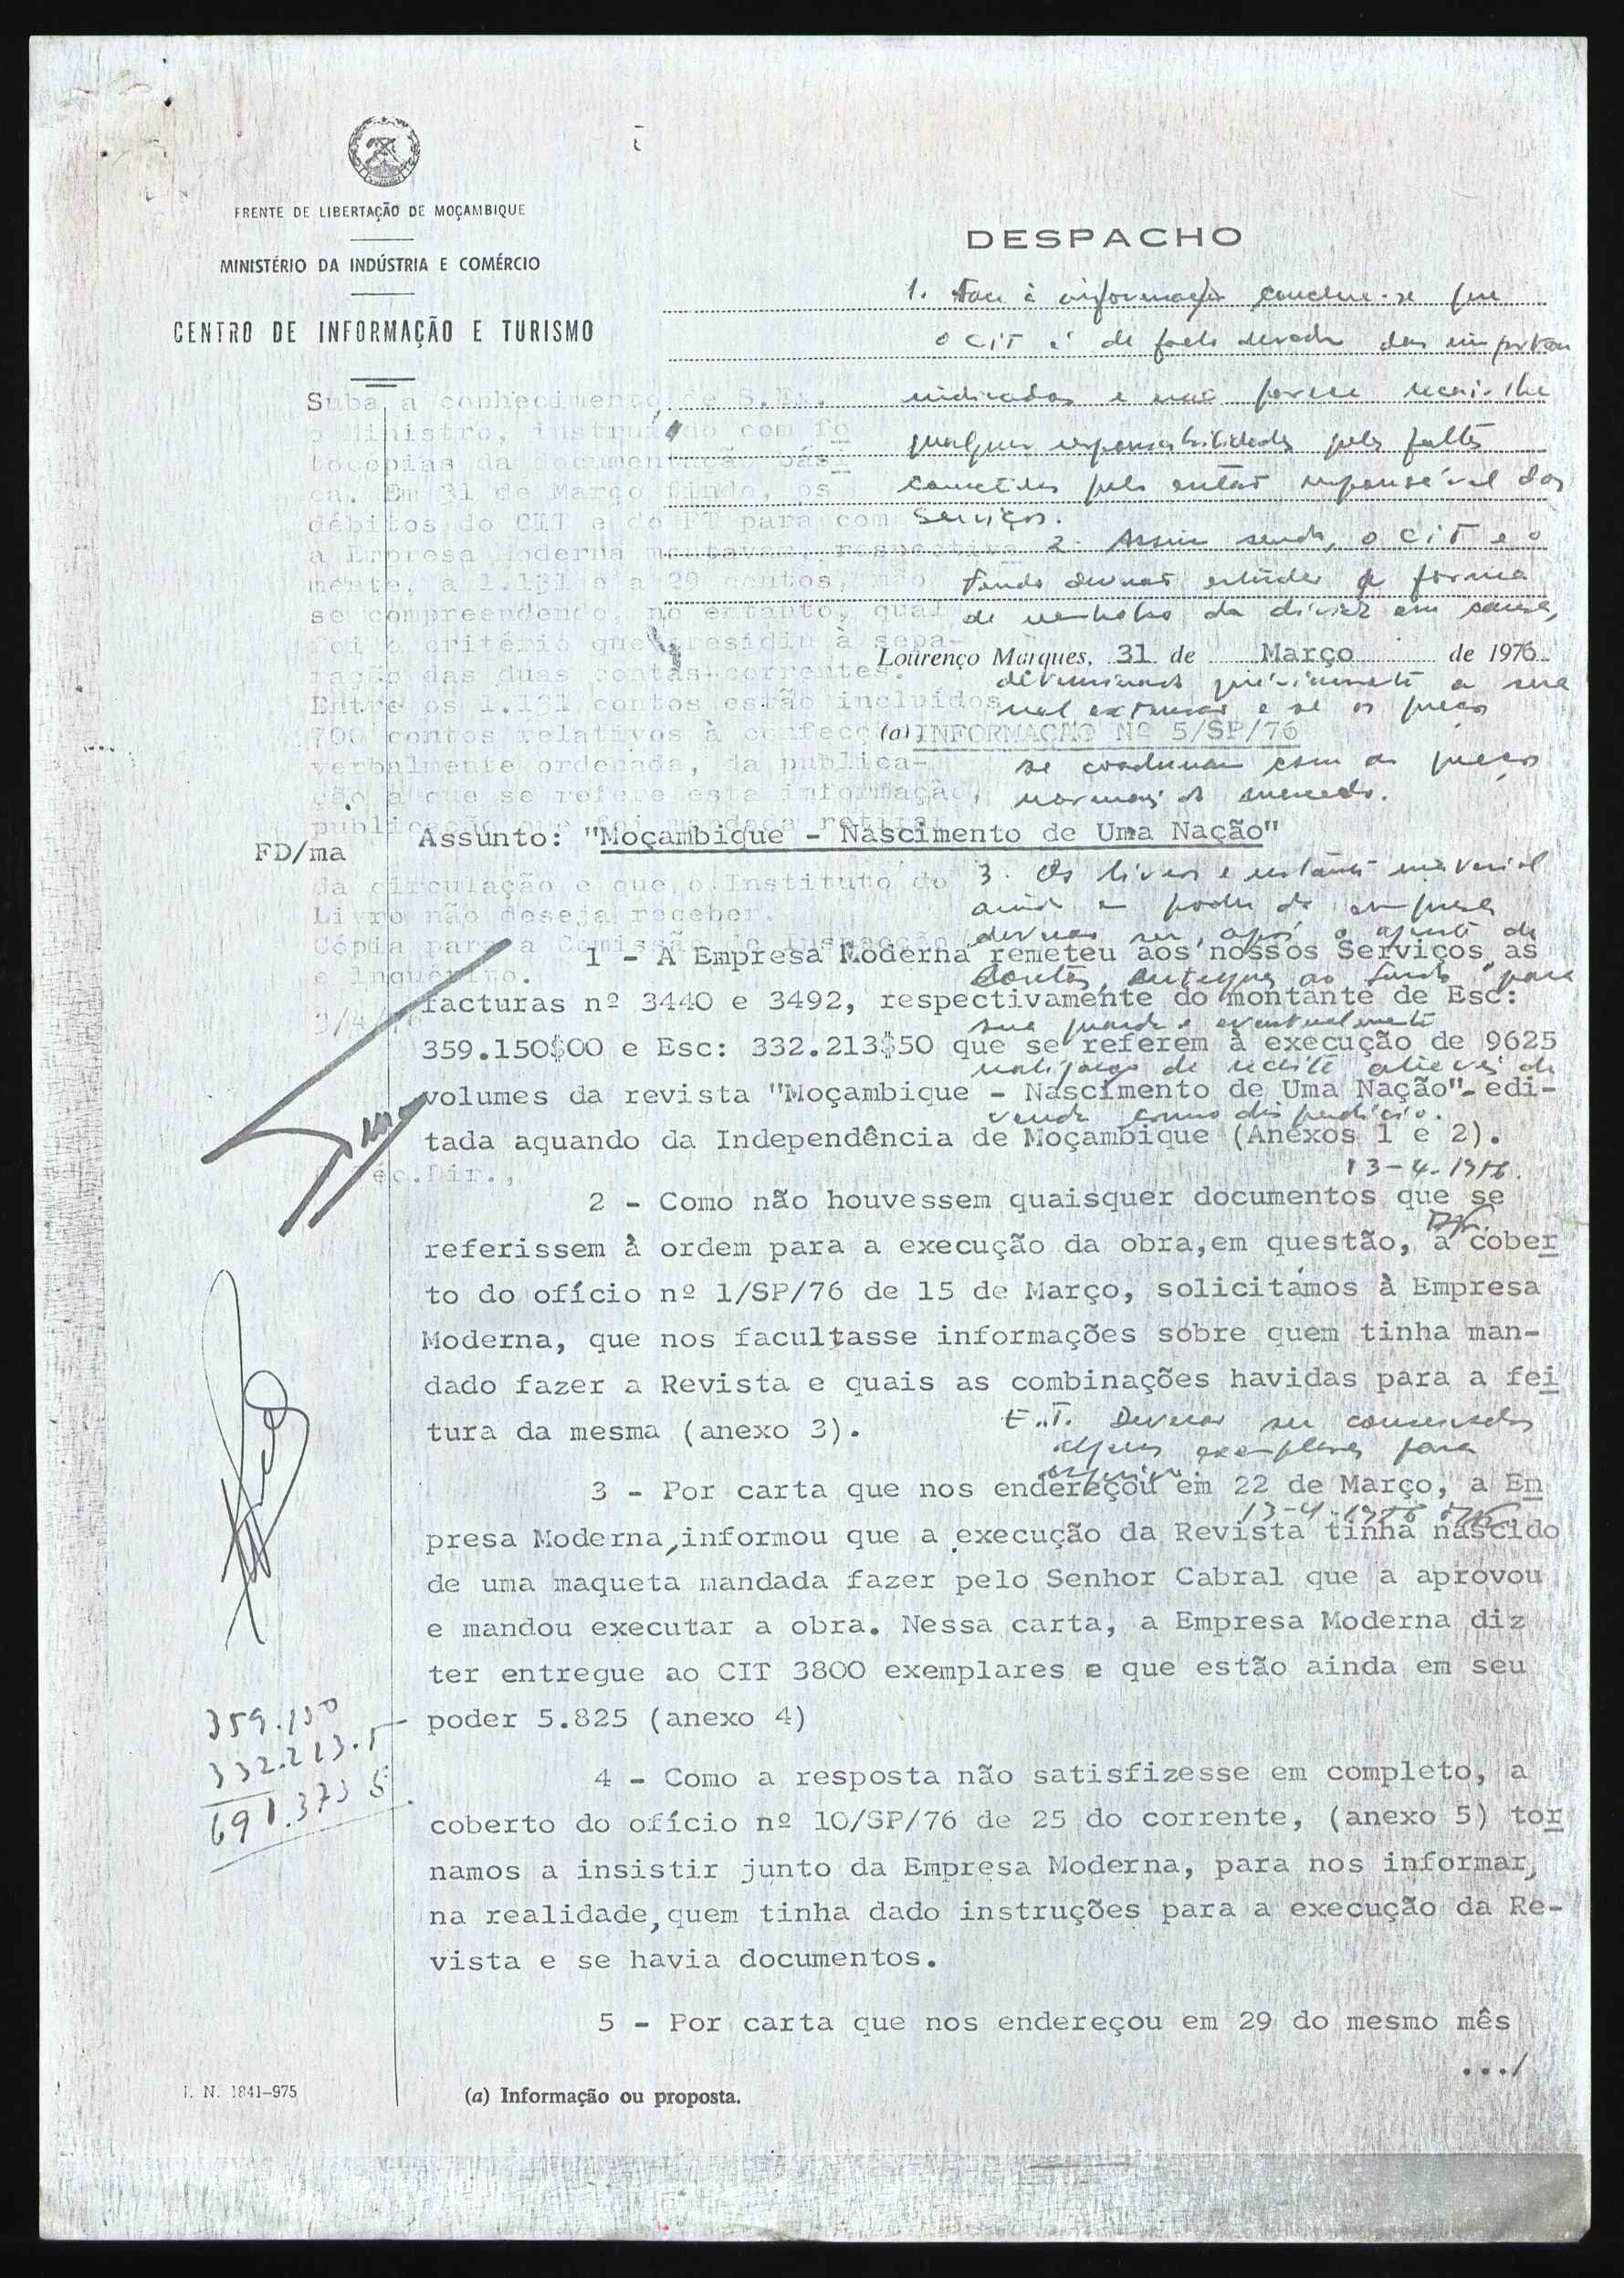 FRENTE DE LIBERTAÇÃO DE MOÇAMBIQUE
MINISTÉRIO DA INDÚSTRIA E COMÉRCIO
CENTRO DE INFORMAÇÃO E TURISMO
DESPACHO
1. Face à informação conclue-se que
o CIT é de facto devedor das
indicadas e não parece
qualquer responsabilidade pelas faltas
cometidas pelo então responsável dos
Serviços.
2. Assim sendo, o CIT e o
Fundo devem estudar a forma
de reembolso da dívida em causa,
Suba a conhecimento de S.Ex.
o Ministro, instruído com fo
tocópias da documentação bási
ca. Em 31 de Março findo, os
débitos do CIT e do FT para com
a Empresa Moderna montavam, respectiva
mente, a 1.131 e a 29 contos, não
se compreendendo, no entanto, qual
foi o critério que presidiu à sepa-
ração das duas contas-correntes.
Entre os 1.131 contos estão incluídos
700 contos relativos à confecção
verbalmente ordenada, da publica-
ção a que se refere esta informação,
publicação que foi mandada retirar
da circulação e que o Instituto do
Livro não deseja receber.
Cópia para a Comissão de Inspecção
e Inquérito.
Lourenço Marques, 31 de Março de 1976
e se os preços
(a) INFORMAÇÃO Nº 5/SP/76
se coadunam com os preços
normais do mercado.
FD/ma
Assunto: "Moçambique - Nascimento de Uma Nação"
3. Os livros e restante material
ainda em poder da empresa
devem ser, após o ajuste de
contas, entregues ao Fundo para
sua guarda e eventualmente
realização de receita através da
venda
13-4-1976.
1 - A Empresa Moderna remeteu aos nossos Serviços as
facturas nº 3440 e 3492, respectivamente do montante de Esc:
359.150$00 e Esc: 332.213$50 que se referem à execução de 9625
volumes da revista "Moçambique - Nascimento de Uma Nação" edi-
tada aquando da Independência de Moçambique (Anexos 1 e 2).
2 - Como não houvessem quaisquer documentos que se
referissem à ordem para a execução da obra,em questão, a cober
to do ofício nº 1/SP/76 de 15 de Março, solicitámos à Empresa
Moderna, que nos facultasse informações sobre quem tinha man-
dado fazer a Revista e quais as combinações havidas para a fei
tura da mesma (anexo 3).
E.T. Deverão ser conservados
alguns exemplares para
arquivo.
13-4-1976
3 - Por carta que nos endereçou em 22 de Março, a Em
presa Moderna,informou que a execução da Revista tinha nascido
de uma maqueta mandada fazer pelo Senhor Cabral que a aprovou
e mandou executar a obra. Nessa carta, a Empresa Moderna diz
ter entregue ao CIT 3800 exemplares e que estão ainda em seu
poder 5.825 (anexo 4)
359.150
332.213.5
691.373 5
4 - Como a resposta não satisfizesse em completo, a
coberto do ofício nº 10/SP/76 de 25 do corrente, (anexo 5) tor
namos a insistir junto da Empresa Moderna, para nos informar,
na realidade,quem tinha dado instruções para a execução da Re-
vista e se havia documentos.
5 - Por carta que nos endereçou em 29 do mesmo mês
.../
I. N. 1841-975
(a) Informação ou proposta.